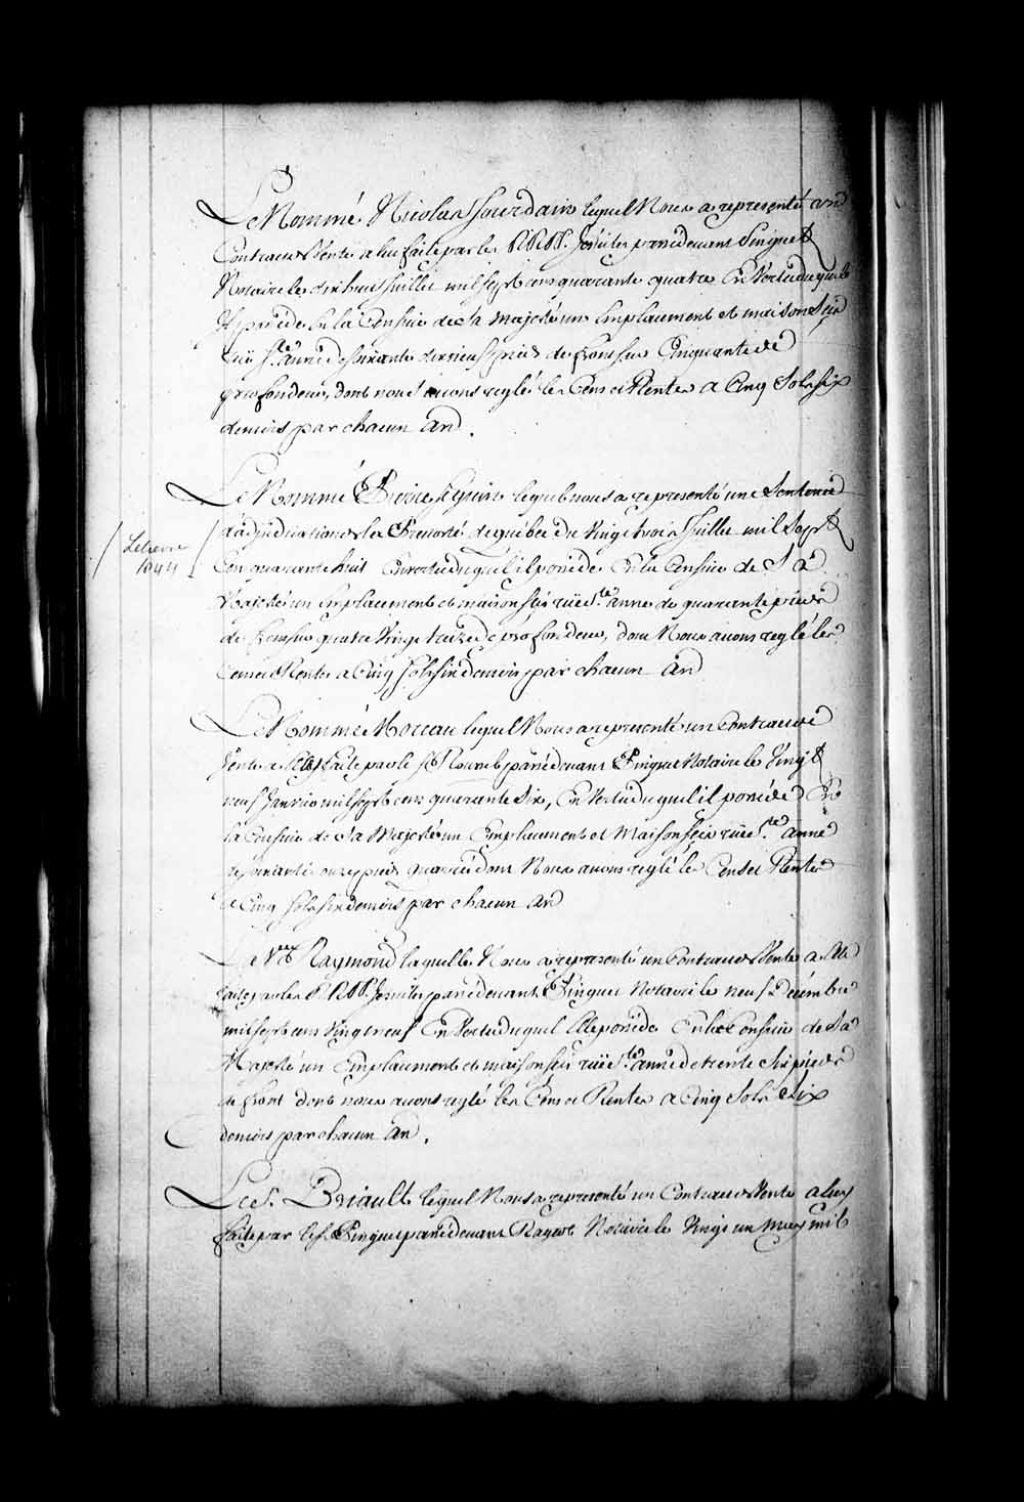 Le Nommé Nicolas Jourdain lequel Nous a representé un
Contract de Vente a luy faite par les RR. PP. Jesuites passé devant Pinguet
Notaire le dix huit Juillet mil sept cens quarante quatre En Vertu duquel
Il possede En la Censive de sa Majesté un Emplacement et maison Scis
rüe Ste anne de soixante pieds de front sur Cinquante de
profondeur, dont nous avons reglé les Cens et Rentes a Cinq Sols six
deniers par chacun an.
Le Nommé Pierre lequel nous a representé une Sentence
d'adjudication de la Prevosté de quebec du Vingt trois Juillet mil Sept
Cens quarante huit En vertu duquel il possede En la Censive de Sa
Lelievre
1044
Majesté un Emplacement et maison Scis rüe Ste anne de quarante pieds
de front sur quatre Vingt treize de profondeur, dont Nous avons reglé les
Cens et Rentes a Cinq sols six deniers par chacun an
Le Nommé Moreau lequel Nous a representé un Contract de
Vente a faite par le Sr passé devant Pinguet Notaire le Vingt
neuf Janvier mil sept cens quarante Six, En Vertu duquel il possede En
la Censive de Sa Majesté un Emplacement et Maison Scis rüe Ste anne
de soixante onze pieds dont Nous avons reglé les Cens et Rentes
a Cinq sols six deniers par chacun an
La Vve Raymond laquelle Nous a representé un Contract de Vente a Elle
faite par les RR. PP. Jesuites passé devant Pinguet Notaire le neuf Decembre
mil sept cens Vingt neuf En Vertu duquel Elle possede En la Censive de Sa
Majesté un Emplacement et maison Scis rüe Ste anne de trente Six pieds
de front dont nous avons reglé les Cens et Rentes a Cinq Sols Six
deniers par chacun an.
Le Sr. Briault lequel Nous a representé un Contract de Vente a luy
faite par le Sr. Pinguet passé devant Notaire le Vingt un mil